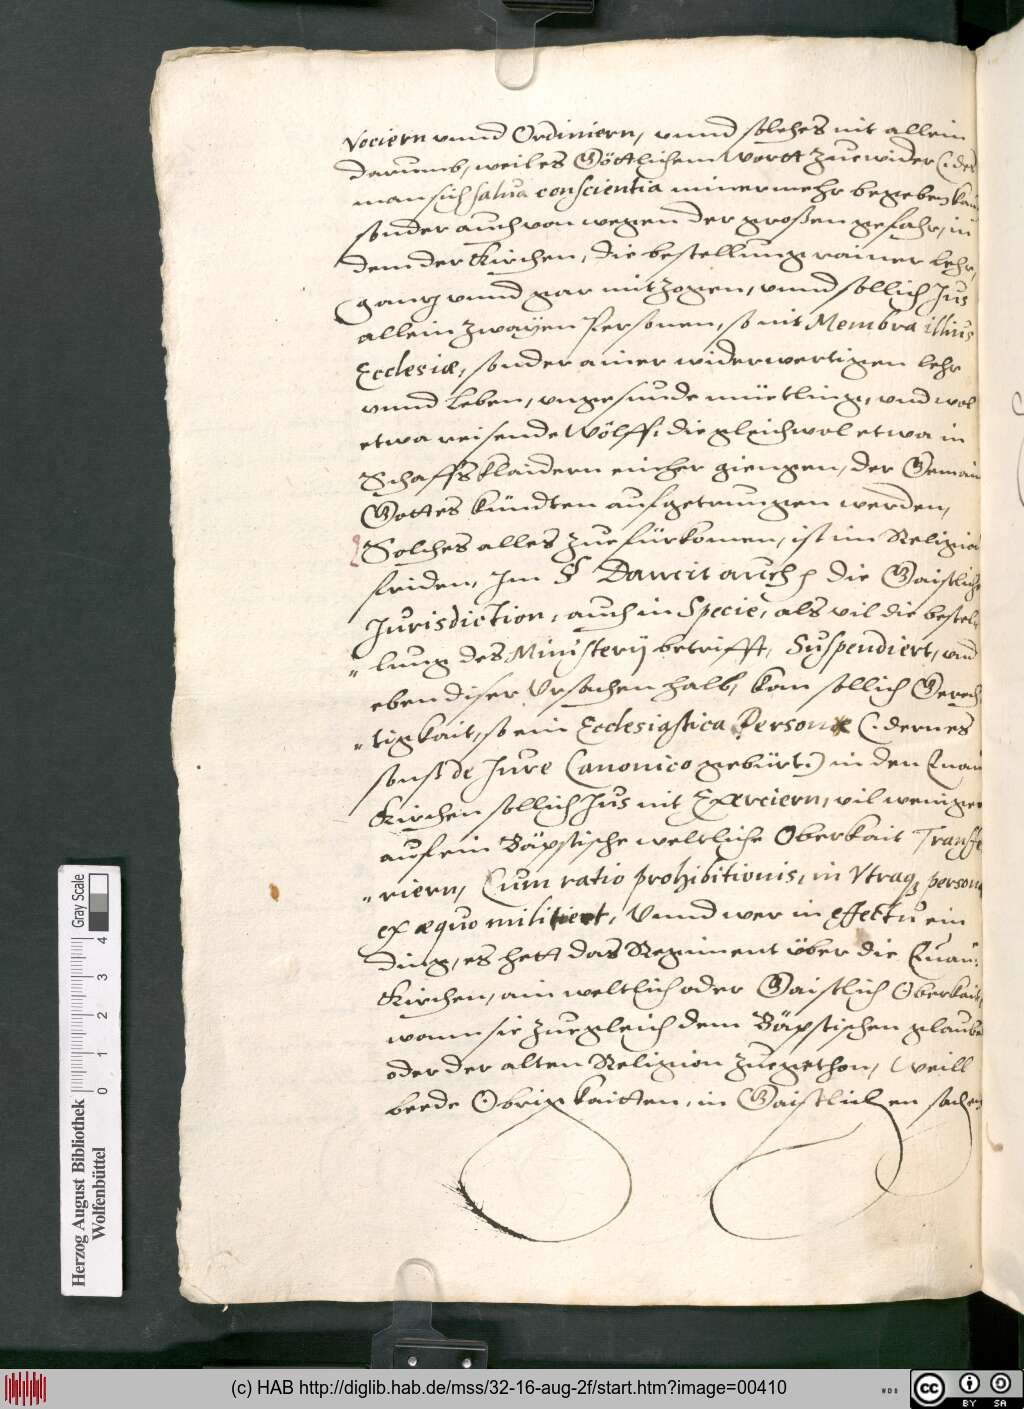 vociern vnnd Ordiniern, vnnd solches nit allein
darumb, weil es Göttlichem wortt zuewider (: des
man sich salua conscientia nimermehr begeben kan
sonder auch von wegen der großen gefahr, in
dem der Kirchen, die bestellung rainer lehr,
gantz vnnd gar mitzogen, vnnd sollich Jus
allein zwayen Personen, so nit Membra illius
Ecclesiæ, sonder ainer widerwertigen lehr
vnnd leben, vngesunde müetling, vnd wol
etwa reisende Wölff, die gleichwol etwa in
Schaffsklaidern eincher giengen, der Gemain
Gottes kündten aufgetrungen werden,
Solches alles zuefürkomen, ist im Religion
friden, Im § Damit auch p die Gaistlich
Jurisdiction, auch in Specie, als vil die bestel
" lung des Ministerij betrifft, Suspendiert, vnd
eben diser Vrsachen halb, kan sollich Gerech
" tigkait, so ein Ecclesiastica Personæ (: dern es
sonst de Jure Canonico gebürt :) in den Euan
Kirchen sollich Jus nit Exerciern, vil weniger
auf ein Bäpstische weltliche Oberkait Transfe
" riern, Cum ratio prohibitionis, in Vtraq; persona
ex æquo militiert, Vnnd wer in effectu ein
ding, es hett das Regiment über die Euan:
Kirchen, ain weltlich oder Gaistlich Oberkait,
wann sie zuegleich dem Bäpstischen glauben
oder der alten Religion zuegethon, Weill
beede Obrigkaitten, in Gaistlichen sachen
Herzog August Bibliothek
Wolfenbüttel
0 1 2 3 4
Gray Scale
(c) HAB http://diglib.hab.de/mss/32-16-aug-2f/start.htm?image=00410
WDB
CC BY SA